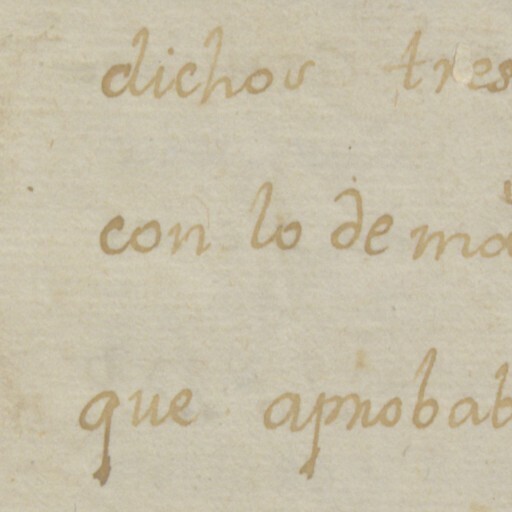 dichos tres
con lo de ma
que aprobab